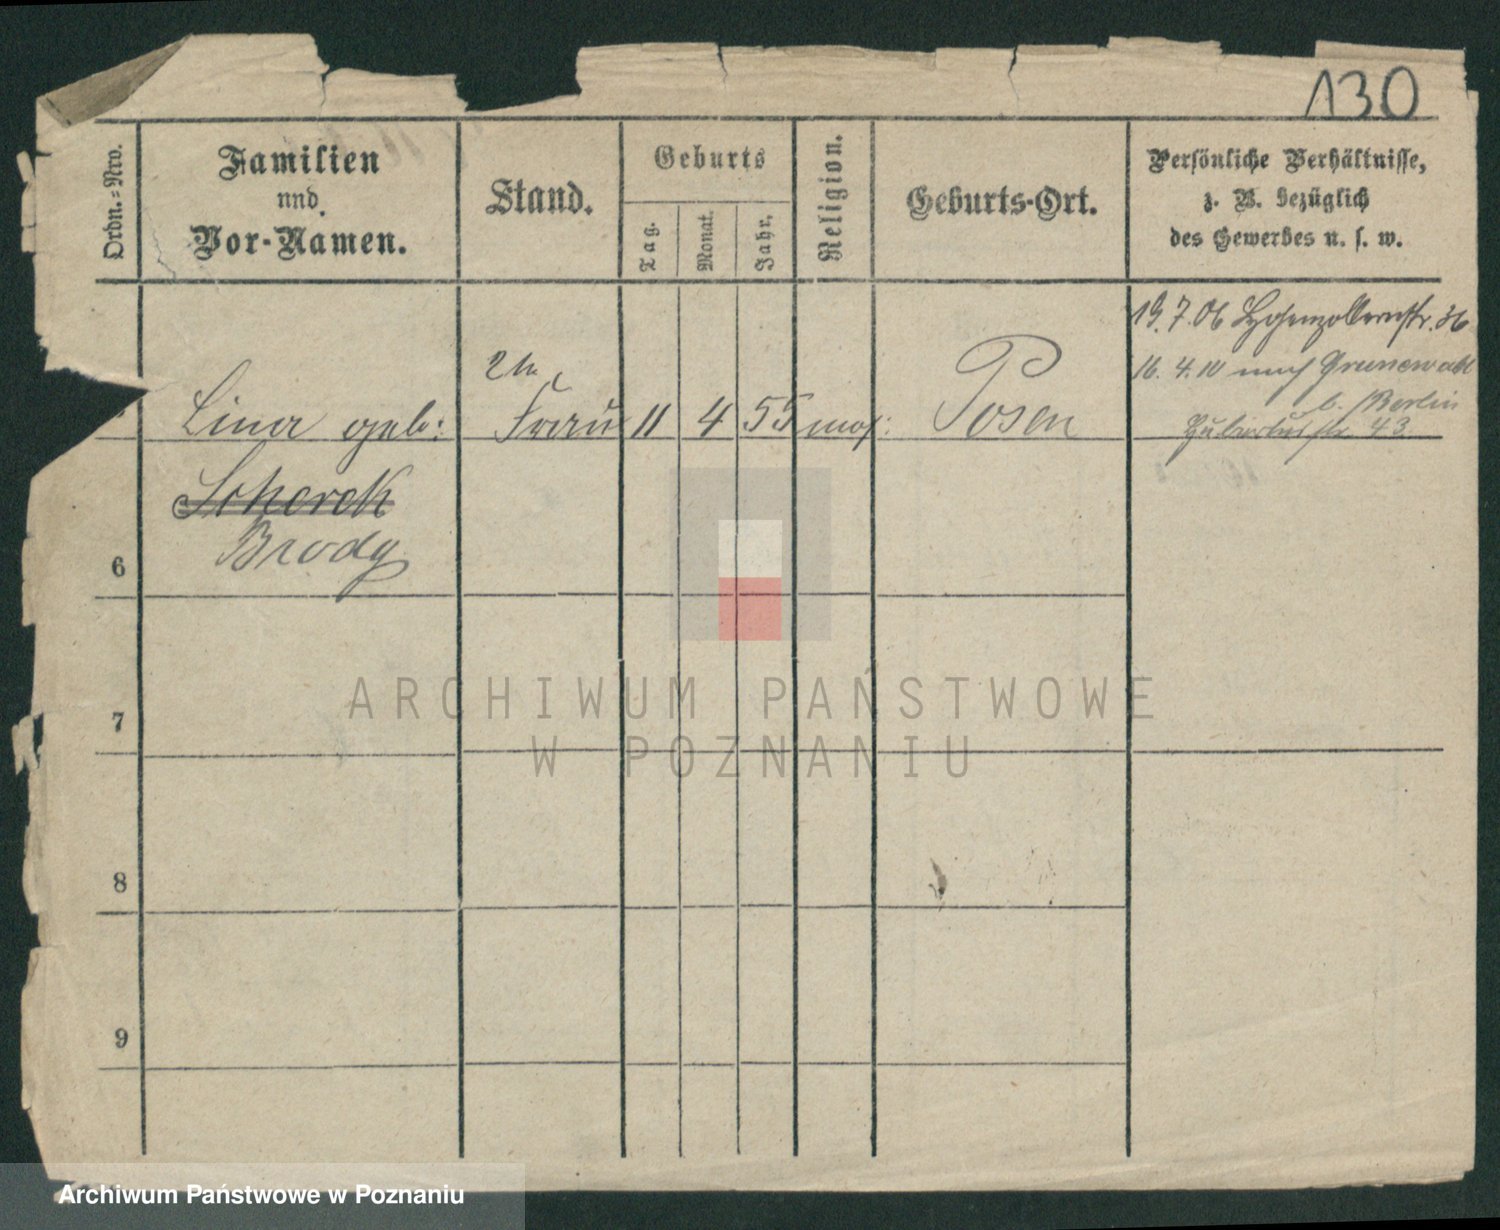 130
Ordn.-Nro.
Familien
und
Vor-Namen.
Stand.
Geburts
Tag.
Monat.
Jahr.
Religion.
Geburts-Ort.
Persönliche Verhältnisse,
z. B. bezüglich
des Gewerbes u. s. w.
19.7.06 Hohenzollernstr. 36
16. 4. 10 nach Grunewald
b. Berlin
Hubertusstr. 43.
2te
Lina geb: Frau 11 4 55 mos: Posen
Scherek
Brody
6
7
8
9
ARCHIWUM PAŃSTWOWE
W POZNANIU
Archiwum Państwowe w Poznaniu